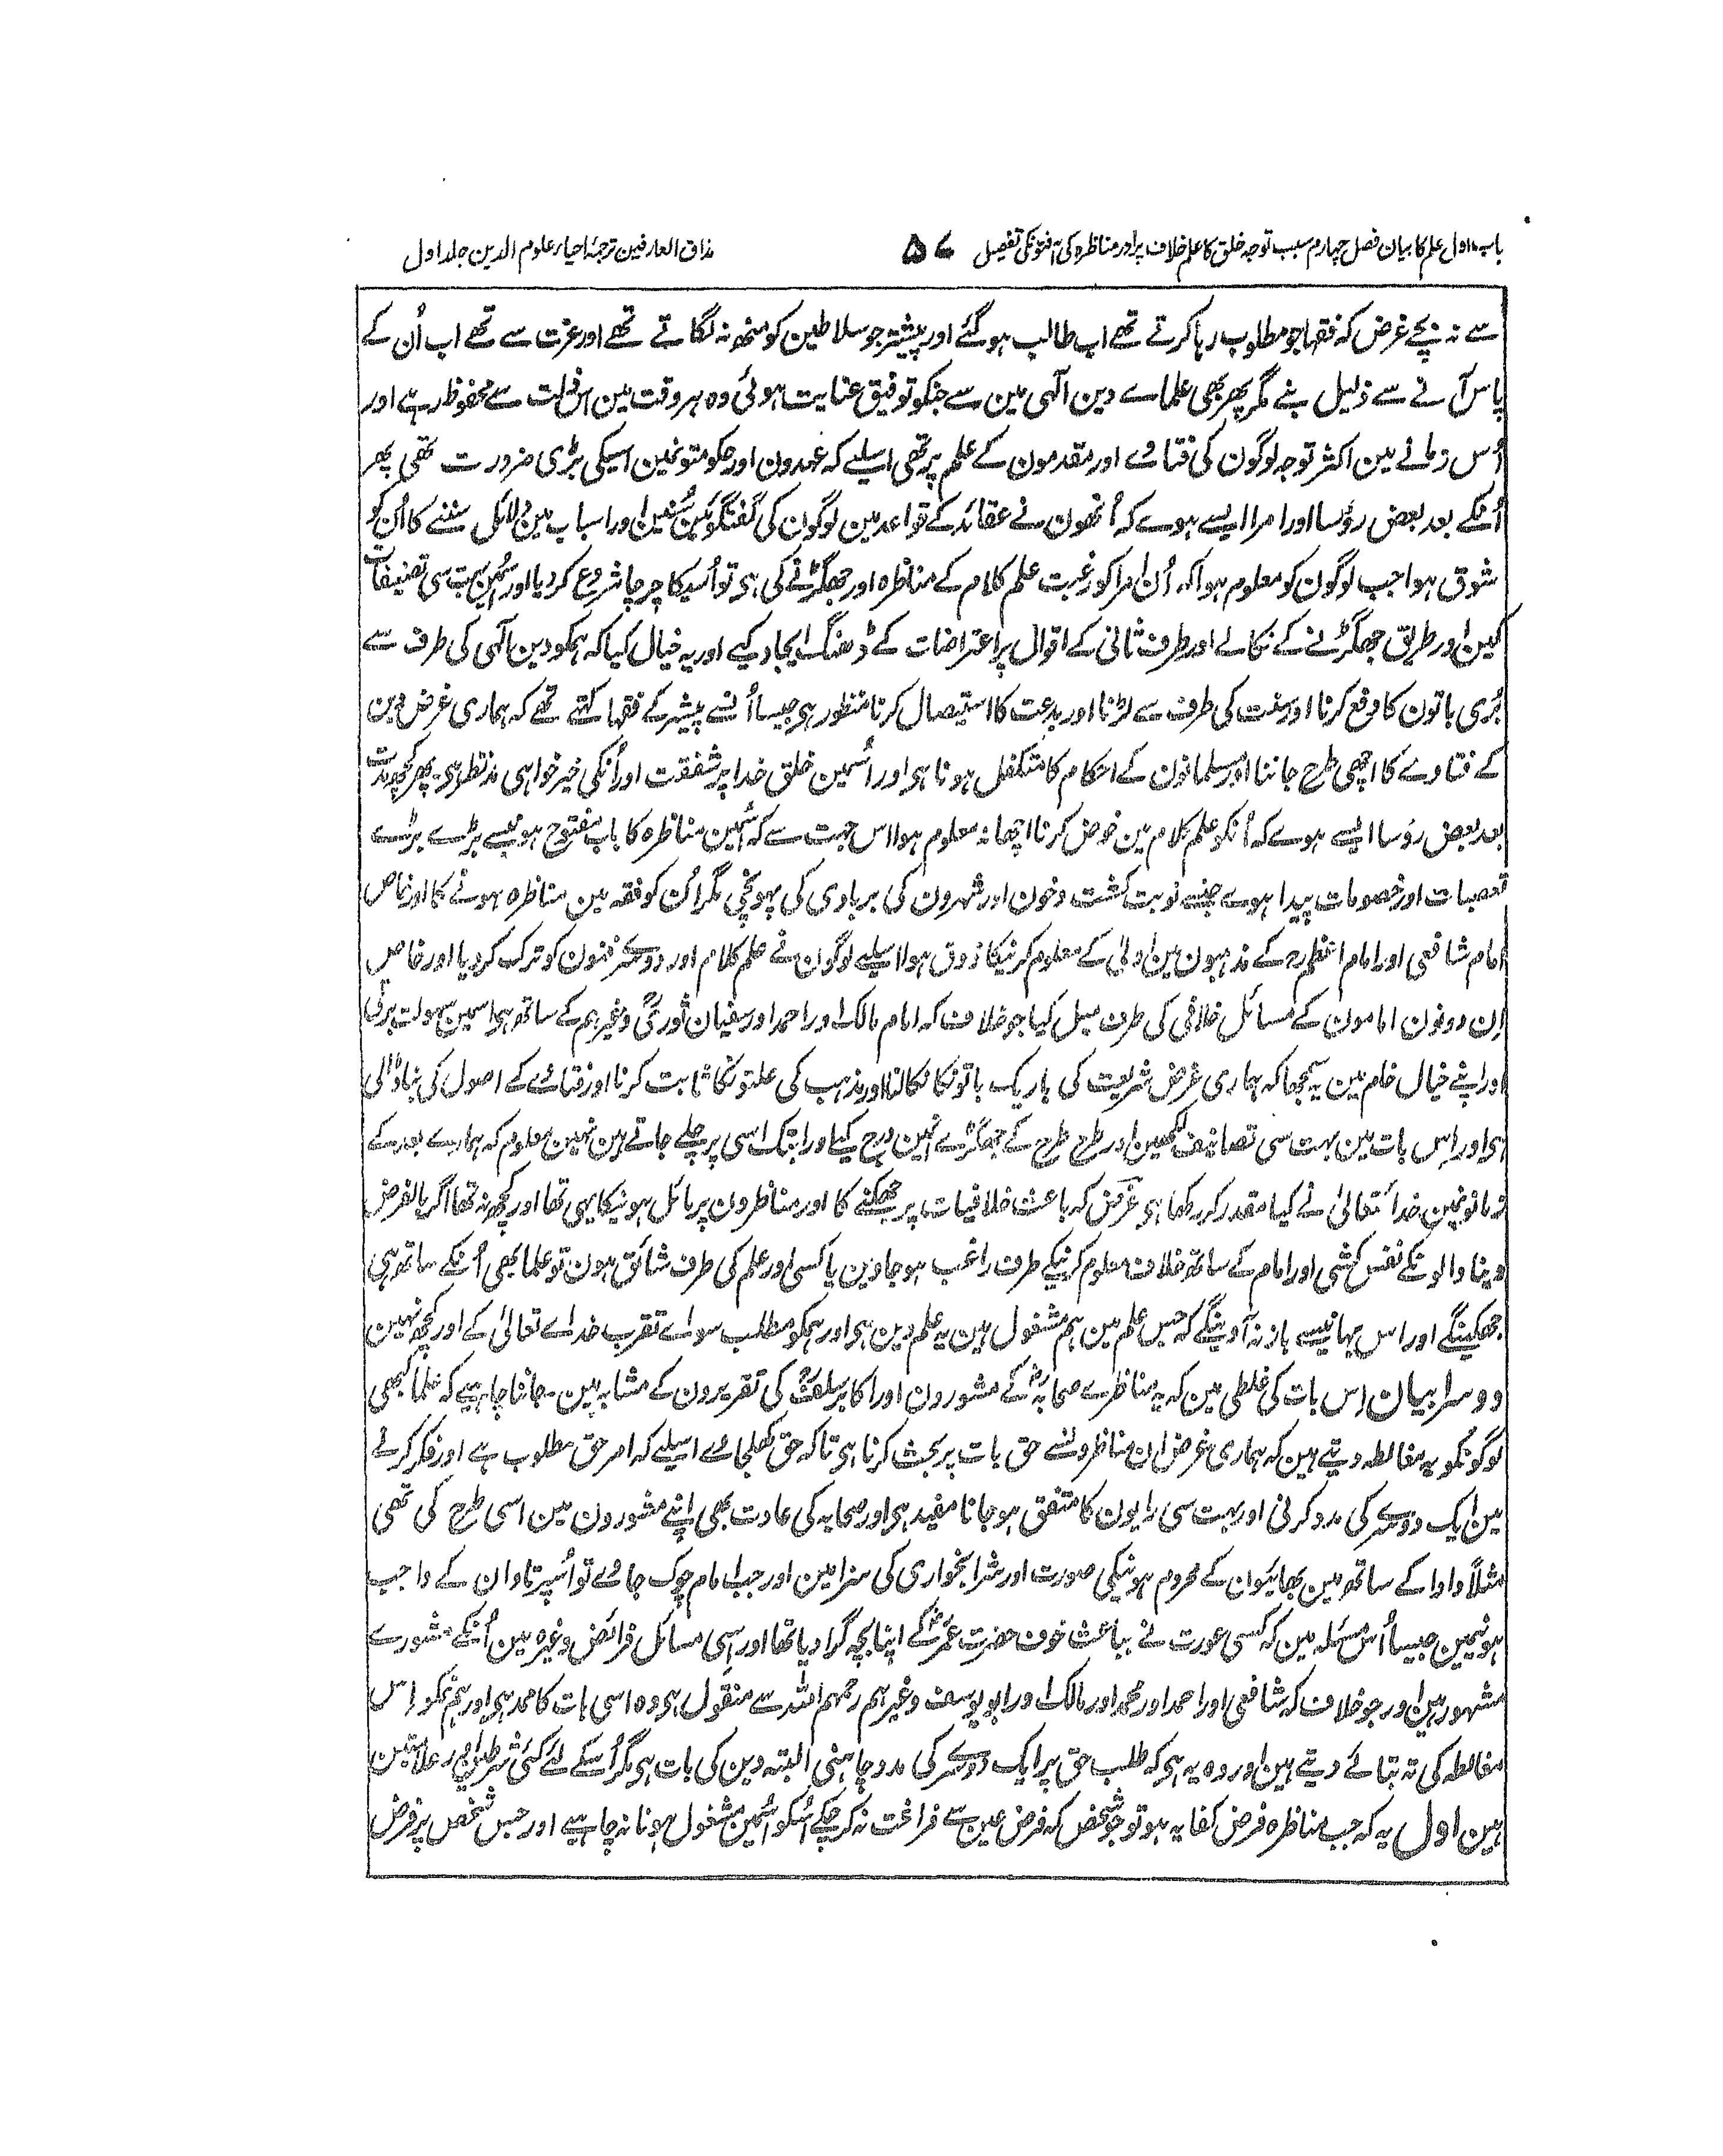 باب اول علم کا بیان فصل چہارم سبب توجہ خلق کا علم خلاف پر اور مناظرہ کی آفتونکی تفصیل ۵۷ مذاق العارفین ترجمۂ احیاء علوم الدین جلد اول
سے نہ بچے غرض کہ فقہا جو مطلوب رہا کرتے تھے اب طالب ہو گئے اور پیشتر جو سلاطین کو منھ نہ لگاتے تھے اور عزت سے تھے اب اُن کے
پاس آنے سے ذلیل بنے مگر پھر بھی علماے دین الٰہی مین سے جنکو توفیق عنایت ہوئی وہ ہر وقت مین اس ذلت سے محفوظ رہے اور
اُس زمانے مین اکثر توجہ لوگون کی فتاوے اور مقدمون کے علم پر تھی اسلیے کہ عہدون اور حکومتونمین اسیکی بڑی ضرورت تھی پھر
اُنکے بعد بعض رؤسا اور امرا ایسے ہوے کہ اُنھون نے عقائد کے قواعد مین لوگون کی گفتگوئین سُنین اور اسباب مین دلائل سننے کا اُن کو
شوق ہوا جب لوگون کو معلوم ہوا کہ اُن امرا کو رغبت علم کلام کے مناظرہ اور جھگڑنے کی ہی تو اُسیکا چرچا شروع کر دیا اور اُسمین بہت سی تصنیفات
کین اور طریق جھگڑنے کے نکالے اور طرف ثانی کے اقوال پر اعتراضات کے ڈھنگ ایجاد کیے اور یہ خیال کیا کہ ہمکو دین الٰہی کی طرف سے
بُری باتون کا دفع کرنا اور سنت کی طرف سے لڑنا اور بدعت کا استیصال کرنا منظور ہی جیسا اُنسے پیشتر کے فقہا کہتے تھے کہ ہماری غرض دین
کے فتاوے کا اچھی طرح جاننا اور مسلمانون کے احکام کا متکفل ہونا ہی اور اُسمین خلق خدا پر شفقت اور اُنکی خیر خواہی مد نظر ہی۔ پھر کچھ مدت
بعد بعض رؤسا ایسے ہوے کہ اُنکو علم کلام مین خوض کرنا اچھا نہ معلوم ہوا اس جہت سے کہ اُسمین مناظرہ کا باب مفتوح ہونیسے بڑے بڑے
تعصبات اور خصومات پیدا ہوے جنسے نوبت کشت و خون اور شہرون کی بربادی کی پہونچی مگر اُن کو فقہ مین مناظرہ ہونے کا اور خاص
امام شافعی اور امام اعظم رح کے مذہبون مین اولیٰ کے معلوم کرنیکا ذوق ہوا اسلیے لوگون نے علم کلام اور دوسرے فنون کو ترک کر دیا اور خاص
اِن دونون امامون کے مسائل خلافی کی طرف میل کیا جو خلاف کہ امام مالک اور احمد اور سفیان ثوری وغیرہم کے ساتھ ہی اسمین سہولت برتی
اور اپنے خیال خام مین یہ سمجھا کہ ہماری غرض شریعت کی باریک باتونکا نکالنا اور مذہب کی علتونکا ثابت کرنا اور فتاوے کے اصول کی بنا ڈالنی
ہی اور اِس بات مین بہت سی تصانیف لکھین اور طرح طرح کے جھگڑے اُنمین درج کیے اور ابتک اسی پر چلے جاتے ہین نہین معلوم کہ ہمارے بعد کے
زمانونمین خدا تعالیٰ نے کیا مقدر کر رکھا ہی غرض کہ باعث خلافیات پر جھکنے کا اور مناظرون پر مائل ہونیکا یہی تھا اور کچھ نہ تھا اگر بالفرض
دنیا والونکے نفس کسی اور امام کے ساتھ خلاف معلوم کرنیکے طرف راغب ہو جاوین یا کسی اور علم کی طرف شائق ہون تو علما بھی اُنکے ساتھ ہی
جھکینگے اور اس بہانیسے باز نہ آوینگے کہ جس علم مین ہم مشغول ہین یہ علم دین ہی اور ہمکو مطلب سواے تقرب خداے تعالیٰ کے اور کچھ نہین
دوسرا بیان اِس بات کی غلطی مین کہ یہ مناظرے صحابہ کے مشورون اور اکابر سلف کی تقریرون کے مشابہ ہین۔ جاننا چاہیے کہ علما کبھی
لوگونکو یہ مغالطہ دیتے ہین کہ ہماری غرض ان مناظرونسے حق بات پر بحث کرنا ہی تاکہ حق کھلجاوے اسلیے کہ امر حق مطلوب ہے اور فکر کرنے
مین ایک دوسرے کی مدد کرنی اور بہت سی رایون کا متفق ہو جانا مفید ہی اور صحابہ کی عادت بھی اپنے مشورون مین اسی طرح کی تھی
مثلاً دادا کے ساتھ مین بھائیون کے محروم ہونیکی صورت اور شرابخواری کی سزا مین اور جب امام چوک جاوے تو اُسپر تاوان کے واجب
ہونیمین جیسا اُس مسئلہ مین کہ کسی عورت نے بباعث خوف حضرت عمر کے اپنا بچہ گرا دیا تھا اور ایسی مسائل فرائض وغیرہ مین اُنکے مشورے
مشہور ہین اور جو خلاف کہ شافعی اور احمد اور محمد اور مالک اور ابو یوسف وغیرہم رحمہم اللہ سے منقول ہی وہ اسی بات کا ممد ہی اور ہم تمکو اِس
مغالطہ کی تہ بتائے دیتے ہین اور وہ یہ ہی کہ طلب حق پر ایک دوسرے کی مدد چاہنی البتہ دین کی بات ہی مگر اُسکے لئے کئی شرطین اور علامتین
ہین اول یہ کہ جب مناظرہ فرض کفایہ ہو تو جو شخص کہ فرض عین سے فراغت نہ کر چکے اُسکو اُسمین مشغول ہونا نہ چاہیے اور جس شخص پر فرض